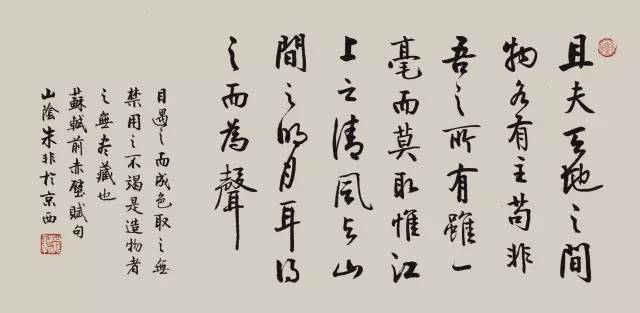 且夫天地之間
物各有主苟非
吾之所有雖一
毫而莫取惟江
上之清風与山
間之明月耳得
之而為聲
目遇之而成色取之無
禁用之不竭是造物者
之無盡藏也
蘇軾前赤壁賦句
山陰朱非於京西